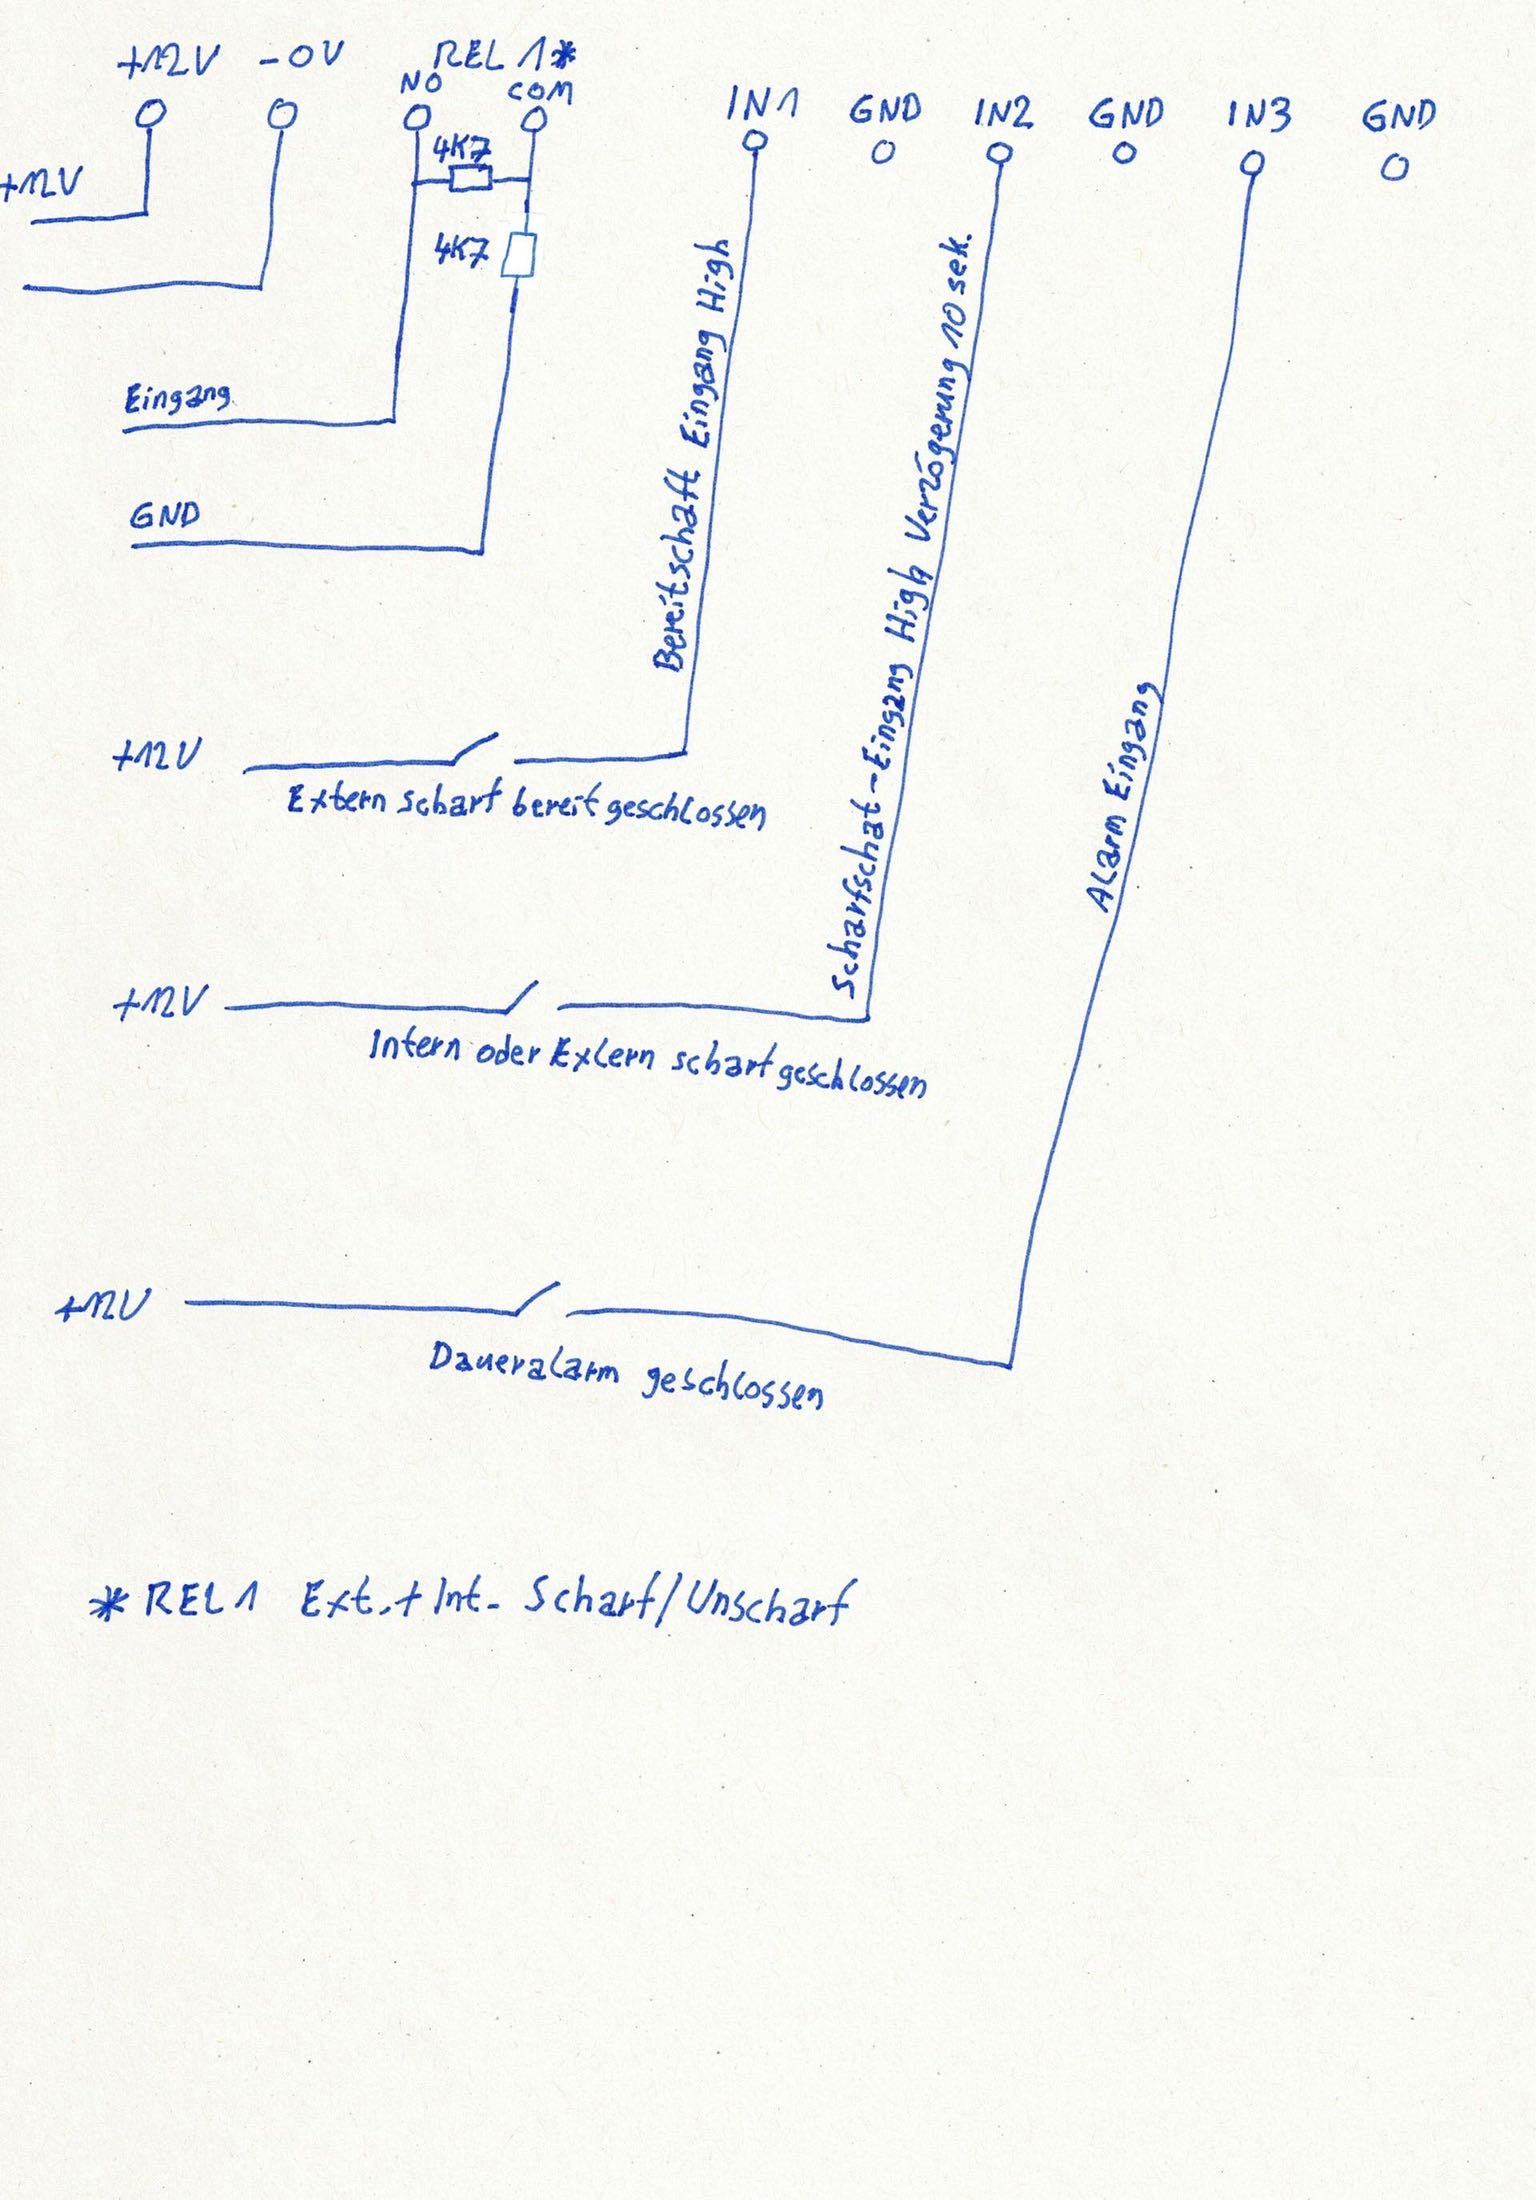 +12V -0V REL1*
NO COM
IN1 GND IN2 GND IN3 GND
4K7
+12V
4K7
Eingang
GND
Bereitschaft Eingang High
Scharfschat-Eingang High Verzögerung 10 sek.
Alarm Eingang
+12V
Extern scharf bereit geschlossen
+12V
Intern oder Extern scharf geschlossen
+12V
Daueralarm geschlossen
* REL1 Ext.+Int- Scharf/Unscharf